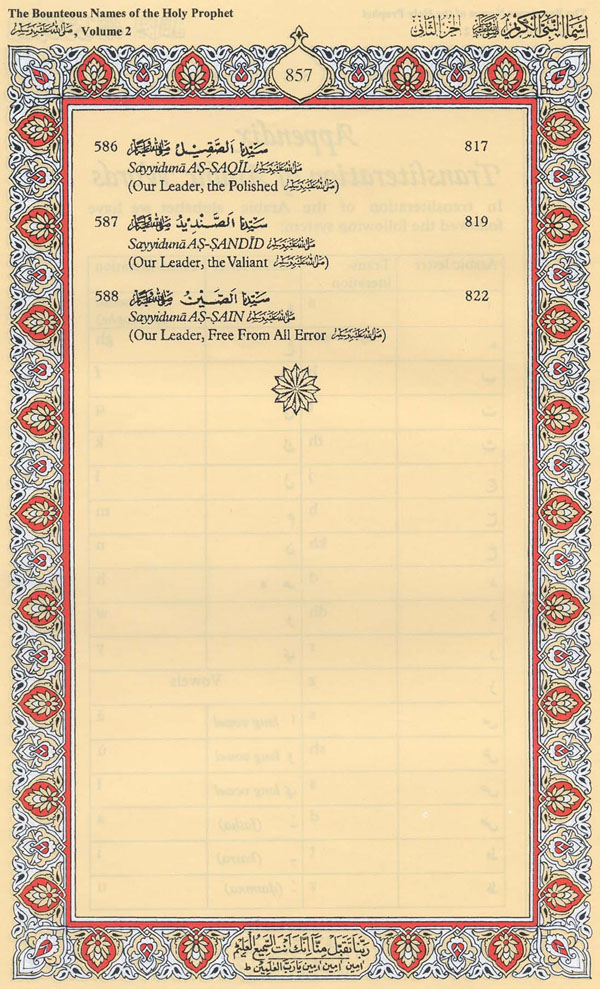 The Bounteous Names of the Holy Prophet
ﷺ, Volume 2
اسماء النبی الکریم ﷺ الجزء الثانی
857
586 سَيِّدُنَا اَلصَّقِيلُ ﷺ 817
Sayyidunā AṢ-ṢAQĪL ﷺ
(Our Leader, the Polished ﷺ)
587 سَيِّدُنَا اَلصِّنْدِيْدُ ﷺ 819
Sayyidunā AṢ-ṢANDĪD ﷺ
(Our Leader, the Valiant ﷺ)
588 سَيِّدُنَا اَلصَّيِّنُ ﷺ 822
Sayyidunā AṢ-ṢAIN ﷺ
(Our Leader, Free From All Error ﷺ)
رَبَّنَا تَقَبَّلْ مِنَّا اِنَّكَ اَنْتَ السَّمِيْعُ الْعَلِيْمُ
اٰمين اٰمين اٰمين يَارَبَّ الْعٰلَمِيْنَ ط